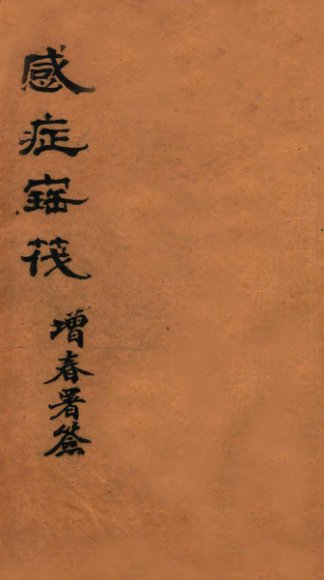 感症寚筏
增春署簽